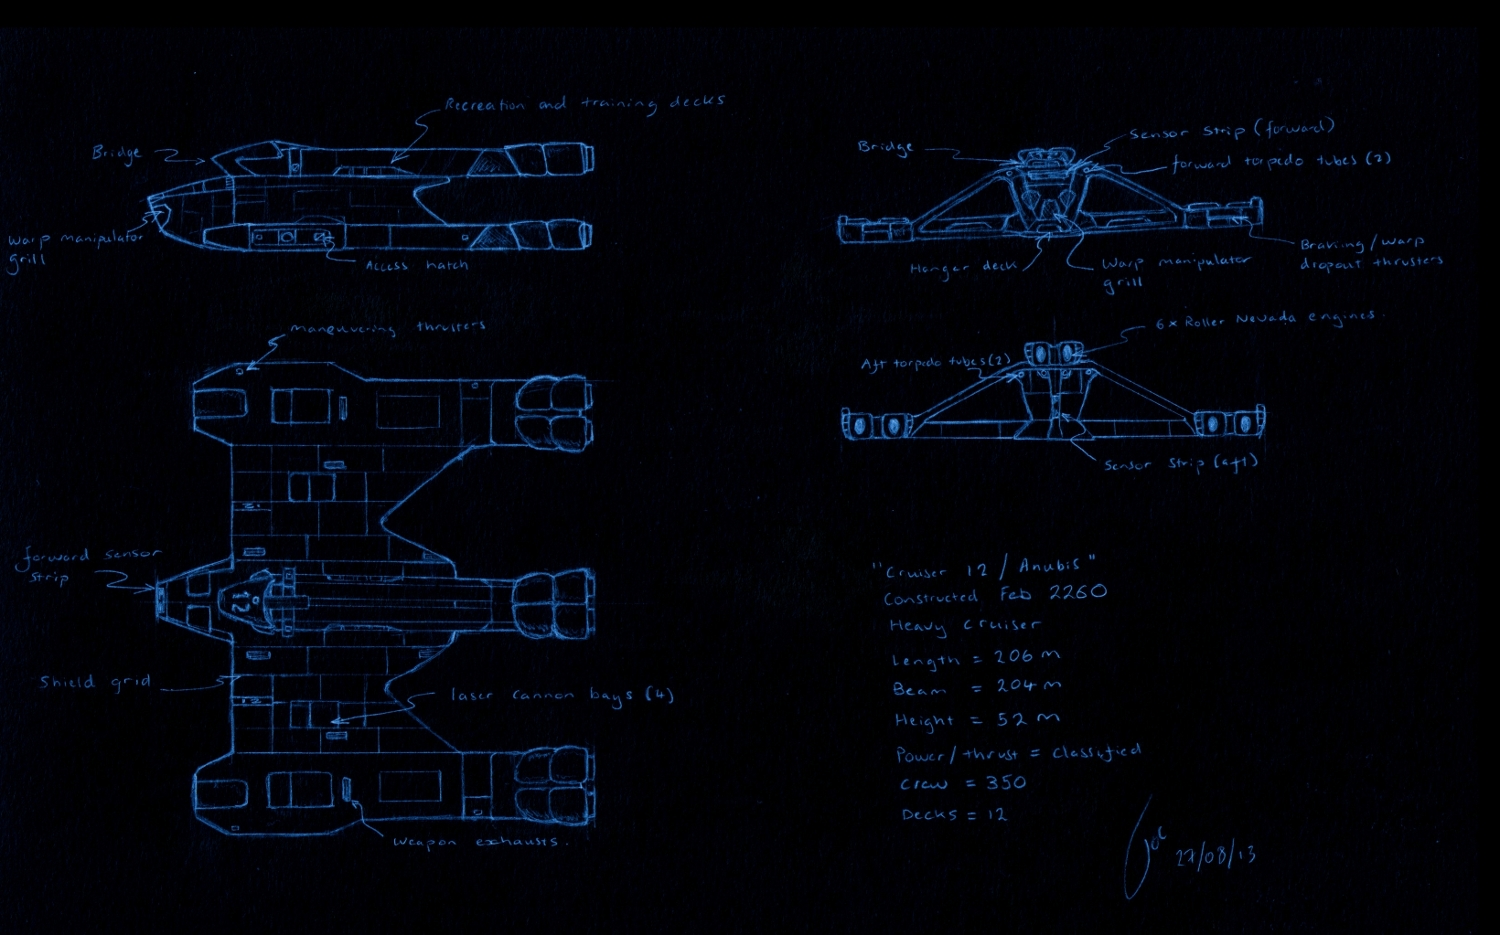 Recreation and training decks
Bridge
Warp manipulator
grill
Access hatch
Bridge
Sensor Strip (forward)
forward torpedo tubes (2)
Hanger deck
Warp manipulator
grill
Braking/warp
dropout thrusters
maneuvering thrusters
6x Roller Nevada engines.
Aft torpedo tubes (2)
Sensor Strip (aft)
forward sensor
strip
12
Shield grid
12
laser cannon bays (4)
Weapon exhausts.
"Cruiser 12 / Anubis"
Constructed Feb 2260
Heavy Cruiser
Length = 206 m
Beam = 204 m
Height = 52 m
Power/thrust = classified
Crew = 350
Decks = 12
27/08/13